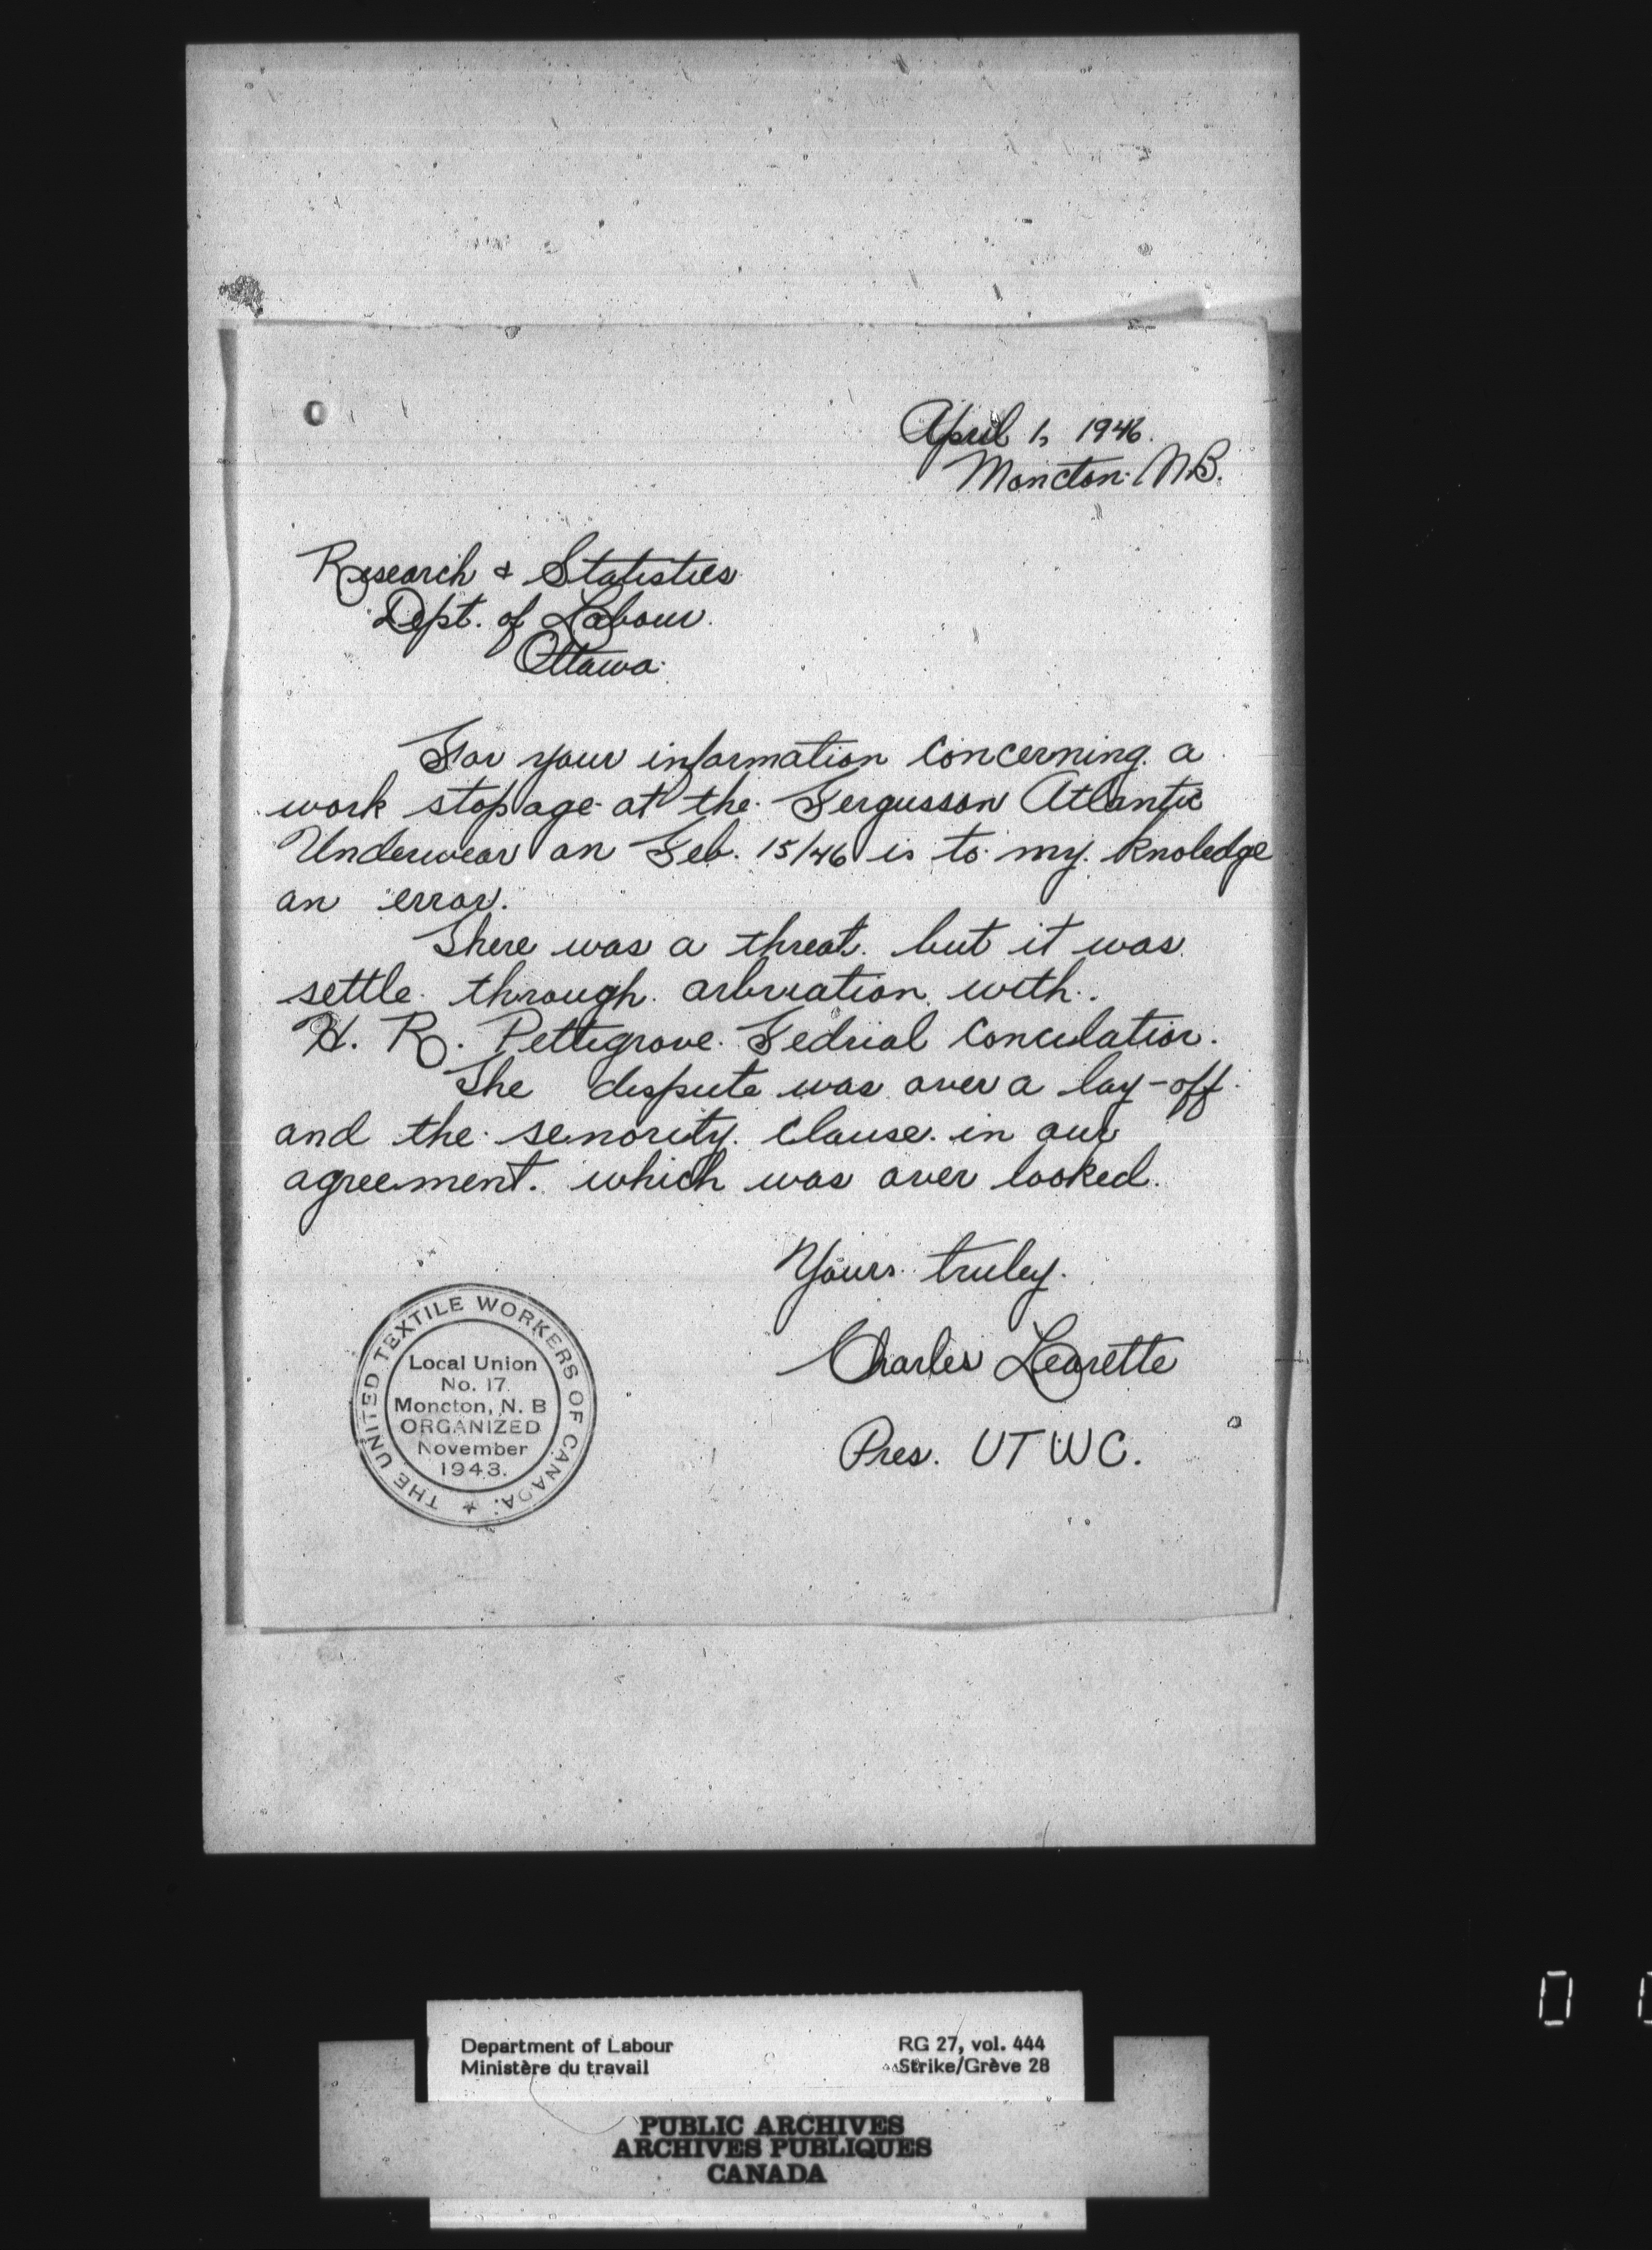 April 1, 1946.
Moncton. N.B.
Research & Statistics
Dept. of Labour.
Ottawa.
For your information concerning a
work stopage at the Fergusson Atlantic
Underwear on Feb. 15/46 is to my knoledge
an error.
There was a threat. but it was
settle through arbruation with.
H. R. Pettigrove. Fedrial Conculatior.
The dispute was over a lay-off.
and the senority. clause. in our
agreement. which was over looked.
Yours truley.
Charles Learette
Pres. UTWC.
THE UNITED TEXTILE WORKERS OF CANADA.
Local Union
No. 17
Moncton, N. B
ORGANIZED
November
1943.
Department of Labour
Ministère du travail
RG 27, vol. 444
Strike/Grève 28
PUBLIC ARCHIVES
ARCHIVES PUBLIQUES
CANADA
0 0